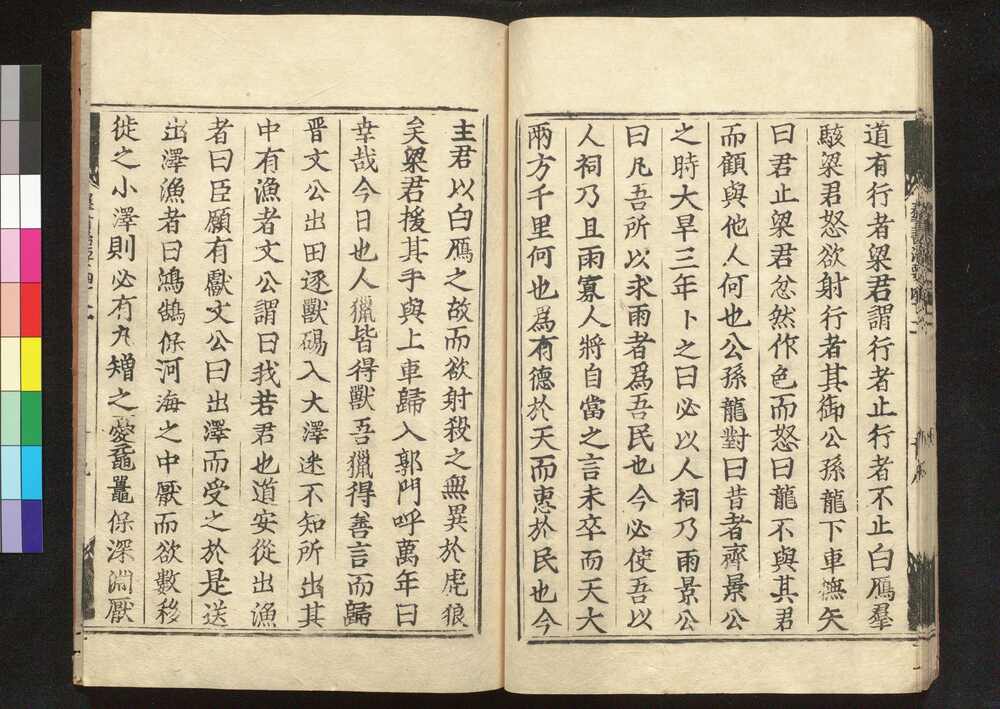 道有行者梁君謂行者止行者不止白鴈羣
駭梁君怒欲射行者其御公孫龍下車撫矢
曰君止梁君忿然作色而怒曰龍不與其君
而顧與他人何也公孫龍對曰昔者齊景公
之時大旱三年卜之曰必以人祠乃雨景公
曰凡吾所以求雨者爲吾民也今必使吾以
人祠乃且雨寡人將自當之言未卒而天大
雨方千里何也爲有德於天而惠於民也今
主君以白鴈之故而欲射殺之無異於虎狼
矣梁君援其手與上車歸入郭門呼萬年曰
幸哉今日也人獵皆得獸吾獵得善言而歸
晋文公出田逐獸碭入大澤迷不知所出其
中有漁者文公謂曰我若君也道安從出漁
者曰臣願有獻文公曰出澤而受之於是送
出澤漁者曰鴻鵠保河海之中厭而欲數移
徙之小澤則必有丸矰之憂黿鼉保深淵厭